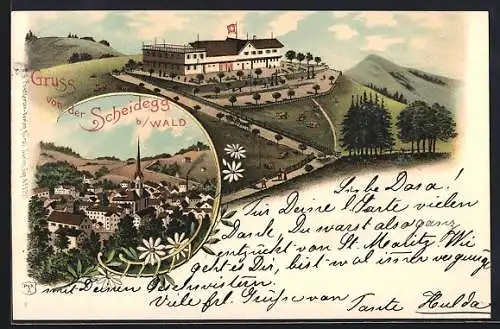 Gruss
von der
Scheidegg
b/WALD
Liebe Rosa!
Für Deine l. Karte vielen
Dank, Du warst also ganz
entzückt von St. Moritz. Wie
geht es Dir, bist wol immer vergnügt
mit Deinen Geschwistern.
Viele frl. Grüsse von
Tante Hulda